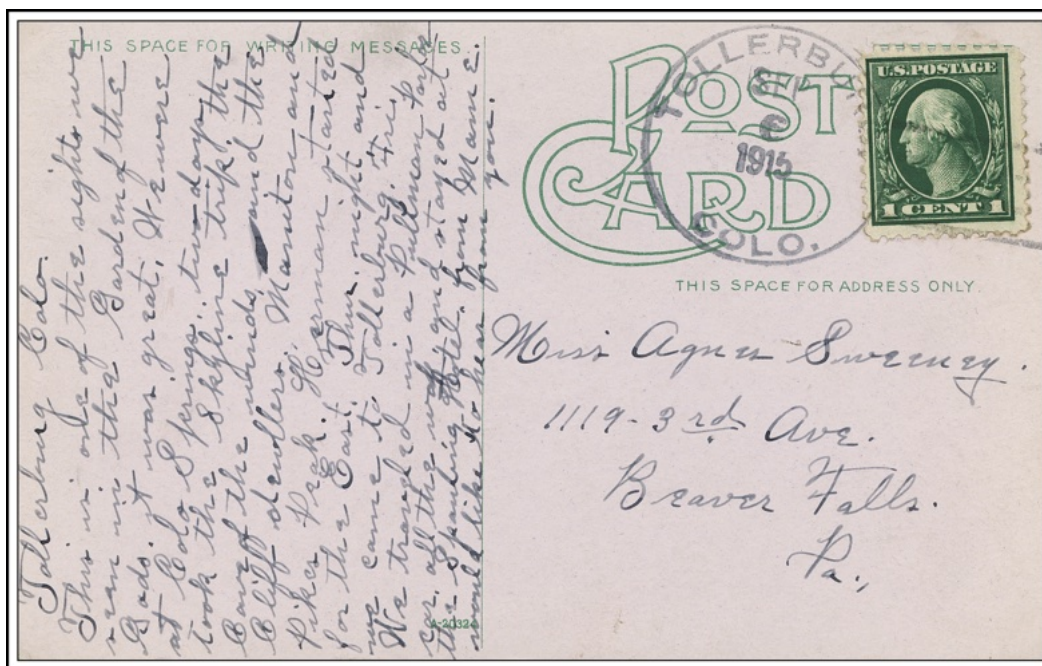 THIS SPACE FOR WRITING MESSAGES.
Tollerburg Colo.
This is one of the sights we
seen in the Garden of the
Gods. It was great. We were
at Colo Springs two days
took the Skyline trip, the
Cave of the winds, and the
Cliff dwellers. Manitou and
Pikes Peak. Herman started
for the East Thur. night and
we came to Tollerburg Fri.
We traveled in a Pullman Parlor
car all the way and stayed at
the Hotel. from Mame.
would like to hear from
you.
A-20324
POST
CARD
TOLLERBU
SEP
6
1915
COLO.
U.S. POSTAGE
1 CENT 1
THIS SPACE FOR ADDRESS ONLY.
Miss Agnes Sweeney.
1119-3rd Ave.
Beaver Falls.
Pa.,